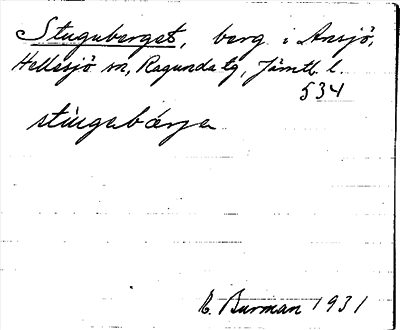 Stuguberget, berg i Ansjö,
Hellesjö sn, Ragunda tg, Jämtl. l.
534
stùgubárjə
B. Burman 1931